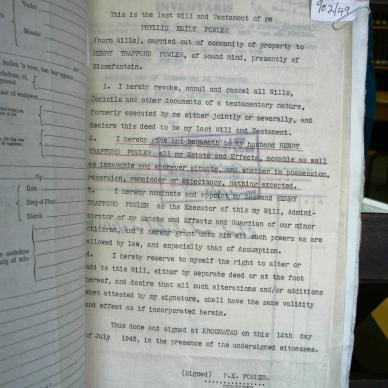 902/49
This is the last Will and Testament of me
PHYLLIS EMILY FOWLER
(born Mills), married out of community of property to
HENRY TRAFFORD FOWLER, of sound mind, presently of
Bloemfontein.
1. I hereby revoke, annul and cancel all Wills,
Codicils and other documents of a testamentary nature,
formerly executed by me either jointly or severally, and
declare this deed to be my last Will and Testament.
2. I hereby give and bequeath to my husband HENRY
TRAFFORD FOWLER all my Estate and Effects, movable as well
as immovable and wherever situate, and whether in possession,
reversion, remainder or expectancy, nothing excepted.
3. I hereby nominate and appoint my husband HENRY
TRAFFORD FOWLER as the Executor of this my Will, Admini-
strator of my Estate and Effects and Guardian of our minor
children, and I hereby grant unto him all such powers as are
allowed by law, and especially that of Assumption.
4. I hereby reserve to myself the right to alter or
add to this Will, either by separate deed or at the foot
hereof, and desire that all such alterations and/or additions
when attested by my signature, shall have the same validity
and effect as if incorporated herein.
Thus done and signed at KROONSTAD on this 12th day
of July 1943, in the presence of the undersigned witnesses.
(Signed) P.E. FOWLER.